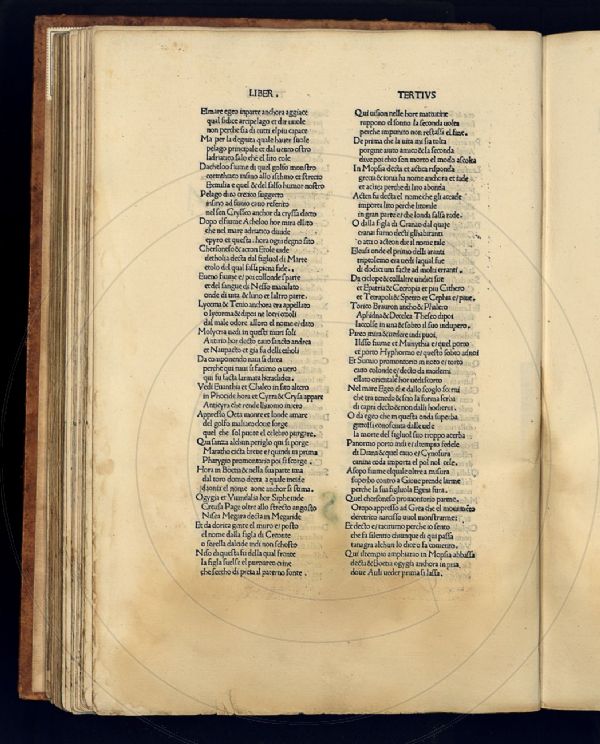 LIBER.
El mare egeo inparte anchora aggiace
qual si dice arcipelago et dir uuole
non perche sia di tutti el piu capace
Ma per la degnita quale hauer suole
pelago principale et dal uento ostro
ladriatico salo che el sito cole
Dacheloo fiume di quel golfo monstro
corinthiaco insino allo isthmo et strecto
Etmilia e quel &del salso humor nostro
Pelago dito cretico suggetto
insino ad sunio
nel sen Crysseo anchor da cryssa decto
Dopo el fiume Acheloo hor mira ellito
che nel mare adriatico diuide
epyro et questa. hora ogni degno sito
Chersoneso & acton Etole uide
detholia decta dal figluol di Marte
etolo del qual fassi piena fide.
Eueno fiume e/ poi collonde sparte
et del sangue di Nesso maculato
onde di uita &luno et laltro parte.
Lycerna & Tenio anchora era appellato
o lycorma & dipoi ne locri ozoli
dal male odore alloro el nome e/ dato
Molycria uedi in questi muri soli
Antirio hor decto capo sancto andrea
et Naupacto et gia fu delli etholi
Da componendo naui si direa
perche qui naui si faceino o uero
qui fu facta larmata heraclidea.
Vedi Euanthia et Chaleo in sito altero
in Phocide hora et Cyrra & Crysa appare
Anticyra che rende lhuomo intero
Appresso Oeta monte et londe amare
del golfo maliaco doue sorge
quel che sol puote el celebro purgire.
Qui sanza alchun periglo qui si porge
Maratho cicta breue e/ quindi in prima
Pharygio promontorio poi si scorge.
Hora in Boetia & nella sua parte ima
dal toro domo decta a quale incide
daonii el nome aone anchor si stima.
Ogygia et Vumdalia hor Siphe uide
Creusa Page oltre allo strecto angusto
Nisea Megara decta in Megaride
Et da dorica gente el muro e/ posto
el nome dalla figla di Creonte
o sarella da lunde indi non schosto
Niso di questa fu della qual fronte
la figla suelse el purpureo crine
che sercho di pieta al paterno fonte.
TERTIVS
Qui uision nelle hore mattutine
ruppono el sonno la seconda uolta
perche impunito non restassi el fine.
De prima che la uita mi sia tolta
porgime aiuto amaco & la seconda
diue poi chio son morto el modo ascolta
In Mopsia decta et actica risponda
grecia & ionia ha nome anchora et tude
et actica perche di lito abonda
Acten fu decta el nome che gli arcade
importa lito perche litorale
in gran parte e/ che londa salsa rode.
O dalla figla di Cranao dal quale
cranai furno decti glhabitanti
o atto o acteon dar al nome tale
Eleusi onde el primo delli erranti
triptolemo era uedi laqual fue
di dodici una facte ad molti erranti.
Da cyclope & collaltre undici sue
et Eputria & Cecropia et piu Cithero
et Tetrapoli & Spetto et Cephra e/ piue.
Torico Brauron ancho & Phalero
Aphidna & Decelea Theseo dipoi
raccolse in una & sobto il suo imdupero.
Pireo mira & uedere indi puoi
Ilisso fiume et Munythia e/ quel porto
et porto Hyphormo e/ questo sobto adnoi
Et Sunio promontorio in noto e/ torto
euro colonde e/ decto da moderni
ellato orientale hor uedi scorto
Nel mare Egeo che dallo scoglo scerni
che tra tenedo & scio la forma serba
di capra decto & non dalli hodierni.
O da egeo che in questa onda superba
gittossi conosciuta dalle uele
la morte del figluol suo troppo acerba
Panormo porto indi e/ il tempio fedele
di Diana & quel euro e/ Cynosura
canina coda importa el pol nol cele.
Asopo fiume elquale oltre a misura
superbo contro a Gioue prende larme
perche la sua figluola Egina fura.
Quel chersoneso promontorio parme.
Oropo appresso ad Grea che el monumeto
deretrico narcisso uuol monstrarme:
Et decto e/ taciturno perche io sento
che fa silentio chiunque di qui passa
tanagra alchun lo dice o fa comento.
Qui il tempio amphirao in Mopsia abbassa
decta & Boetia ogygia anchora in pria
doue Auli ueder prima si lassa.